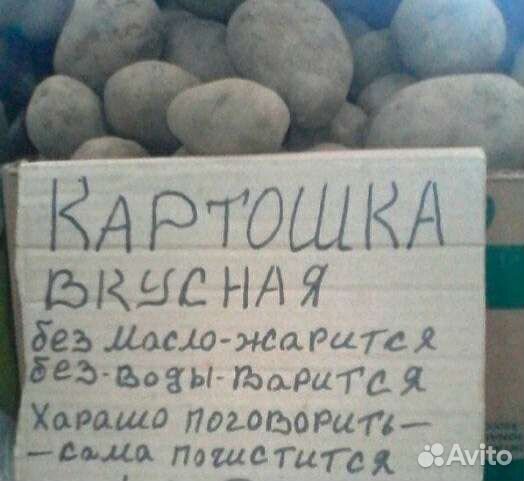 КАРТОШКА
ВКУСНАЯ
без масло-жарится
без-воды-варится
Харашо поговорить-
-сама почистится
Avito